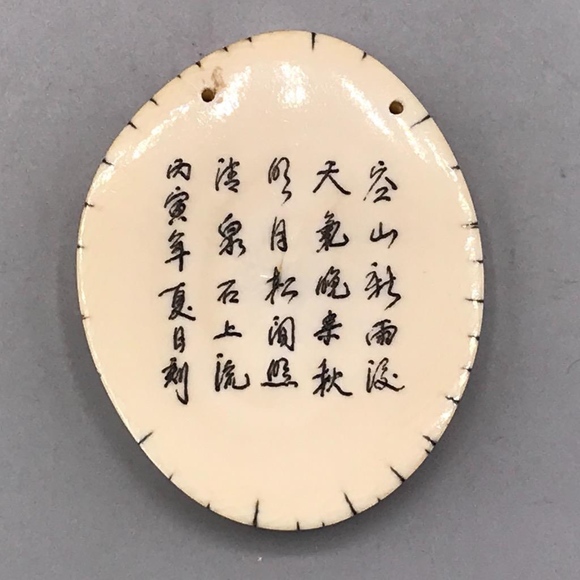 空山新雨後
天氣晚来秋
明月松间照
清泉石上流
丙寅年夏日刻